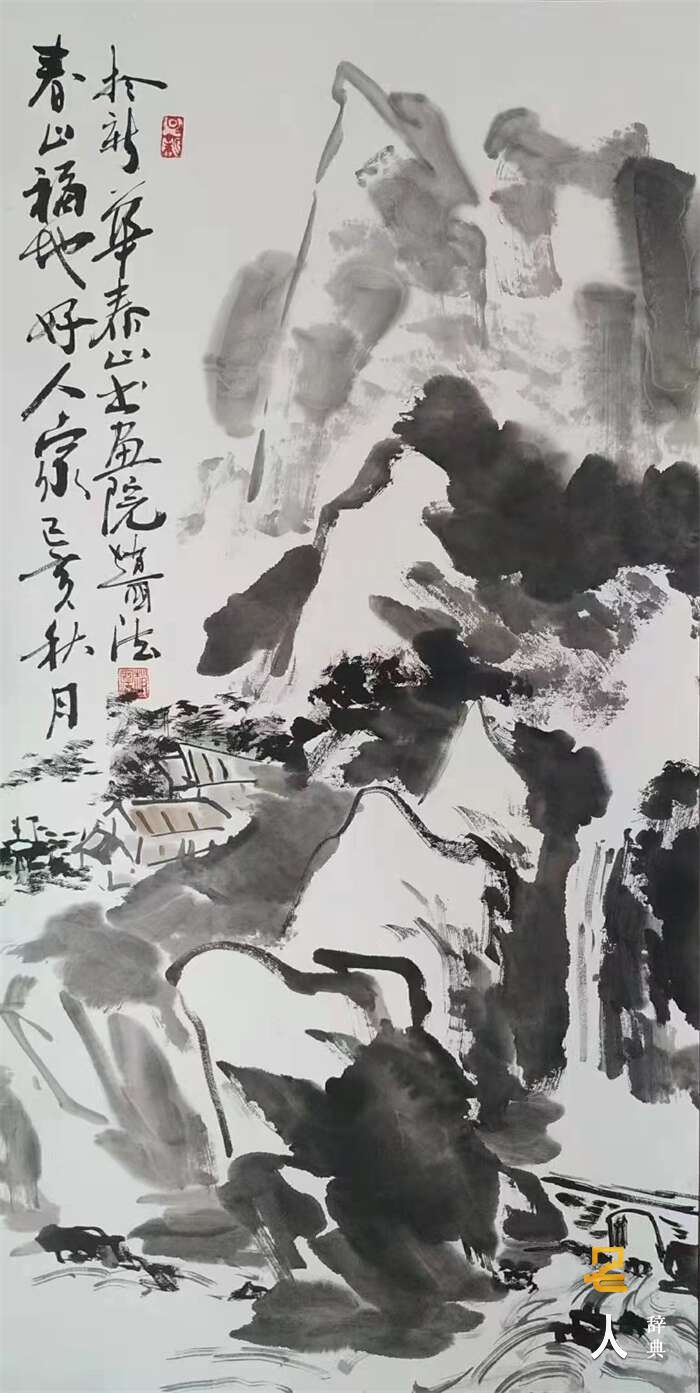 春山福地好人家己亥秋月
扵新華泰山书画院
名人
辞典